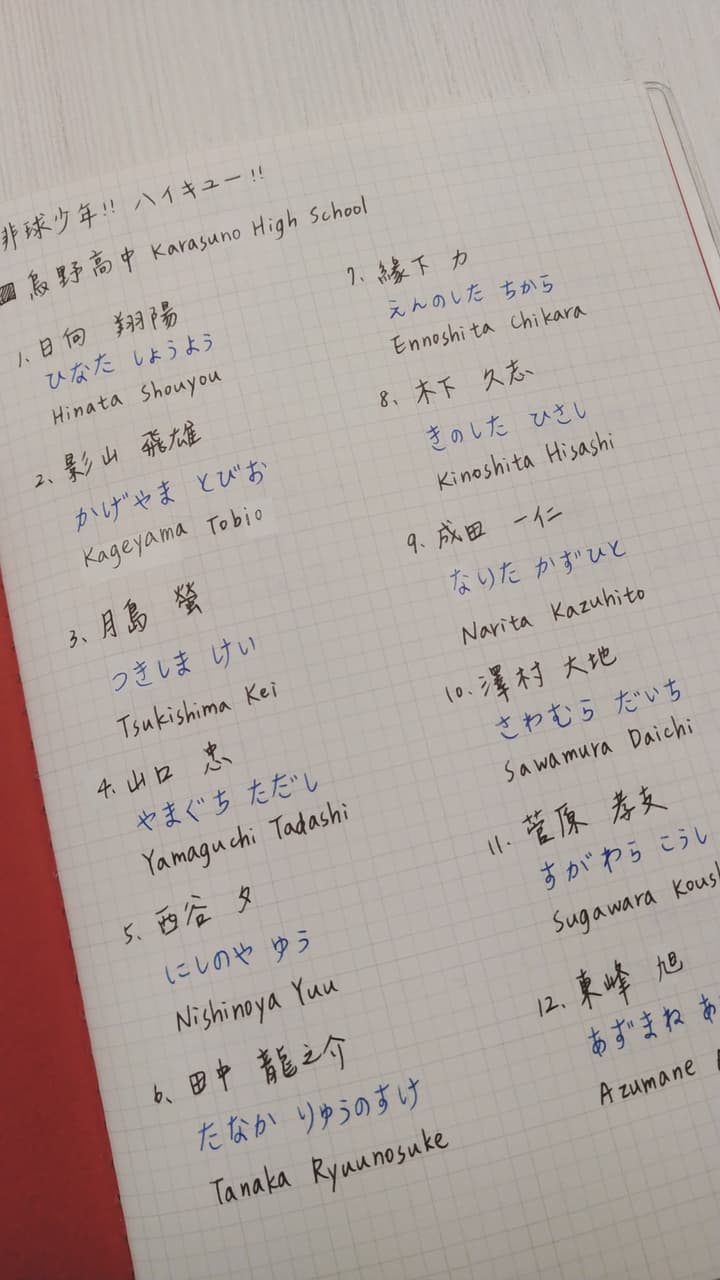 排球少年!! ハイキュー!!
烏野高中 Karasuno High School
1. 日向 翔陽
ひなた しょうよう
Hinata Shouyou
2. 影山 飛雄
かげやま とびお
Kageyama Tobio
3. 月島 螢
つきしま けい
Tsukishima Kei
4. 山口 忠
やまぐち ただし
Yamaguchi Tadashi
5. 西谷 夕
にしのや ゆう
Nishinoya Yuu
6. 田中 龍之介
たなか りゅうのすけ
Tanaka Ryuunosuke
7. 緣下 力
えんのした ちから
Ennoshita Chikara
8. 木下 久志
きのした ひさし
Kinoshita Hisashi
9. 成田 一仁
なりた かずひと
Narita Kazuhito
10. 澤村 大地
さわむら だいち
Sawamura Daichi
11. 菅原 孝支
すがわら こうし
Sugawara
12. 東峰 旭
あずまね
Azumane